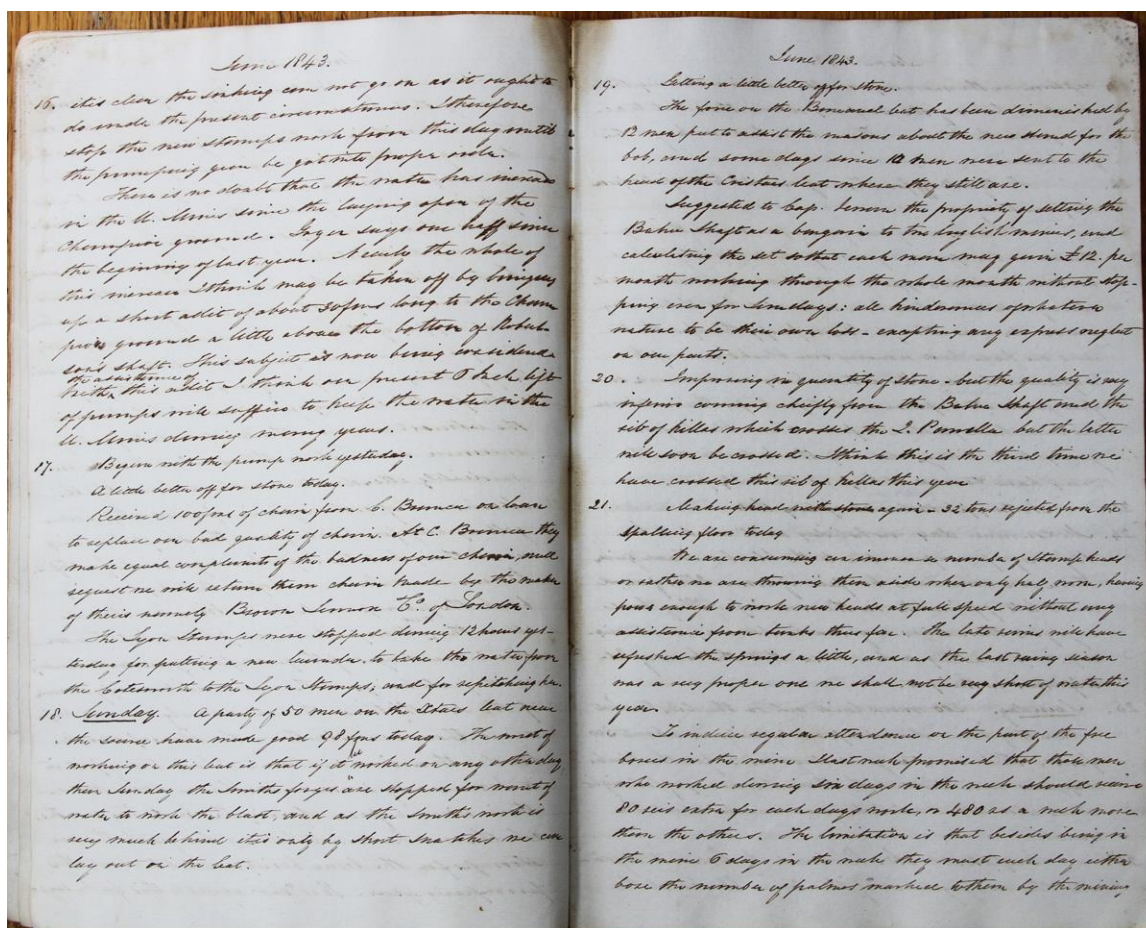 June 1843.
16. it is clear the sinking can not go on as it ought to
do under the present circumstances. I therefore
stop the new stamps work from this day until
the pumping gear be got into proper order.
There is no doubt that the water has increas
in the U. Mines since the laying open of the
Champion ground. says one half since
the beginning of last year. Nearly the whole of
this increase I think may be taken off by bringing
up a short adit of about 30 fms long to the Cham
pion ground a little above the bottom of Robut
son's shaft. This subject is now being considered
the assistance of
With this adit I think our present 6 Inch lift
of pumps will suffice to keep the water in the
U. Mines during many years.
17. Began with the pump work yesterday.
A little better off for stone today.
Received 100 fms of chain from C. Branca on loan
to replace our bad quality of chain. At C. Branca they
make equal complaints of the badness of our chain, and
request we will return them chain made by the maker
of theirs namely Brown Lennon & Co. of London.
The Lyon Stamps were stopped during 12 hours yes-
terday for putting a new launder, to take the water from
the Cotesworth to the Lyon Stamps; and for repitching her.
18. Sunday. A party of 50 men on the leat near
the source have made good 98 fms today. The worst of
working on this leat is that if it worked on any other day
than Sunday the Smiths forges are stopped for want of
water to work the blast, and as the smiths work is
very much behind it is only by short snatches we can
lay out on the leat.
June 1843.
19. Getting a little better off for stone.
The force on the leat has been diminished by
12 men put to assist the masons about the new stand for the
bob, and some days since 12 men were sent to the
head of the Cristaes leat where they still are.
Suggested to Cap. the propriety of setting the
Bahu Shaft as a bargain to the English miners, and
calculating the set so that each man may gain £12. per
month working through the whole month without stop-
ping even for Sundays: all hindrances of whatever
nature to be their own loss - excepting any express neglect
on our parts.
20. Improving in quantity of stone - but the quality is very
inferior coming chiefly from the Bahu Shaft and the
rib of killas which crosses the Q. Panella but the latter
will soon be crossed. I think this is the third time we
have crossed this rib of killas this year
21. Making head with stone again - 32 tons rejected from the
spalling floor today
We are consuming an immense number of Stamp heads
or rather we are throwing them aside when only half worn, having
power enough to work new heads at full speed without any
assistance from tanks thus far. The late rains will have
refreshed the springs a little, and as the last rainy season
was a very proper one we shall not be very short of water this
year.
To induce regular attendance on the part of the free
borers in the mine I last week promised that those men
who worked during six days in the week should receive
80 reis extra for each days work, or 480 rs a week more
than the others. The limitation is that besides being in
the mine 6 days in the week they must each day either
bore the number of palmes marked to them by the mining